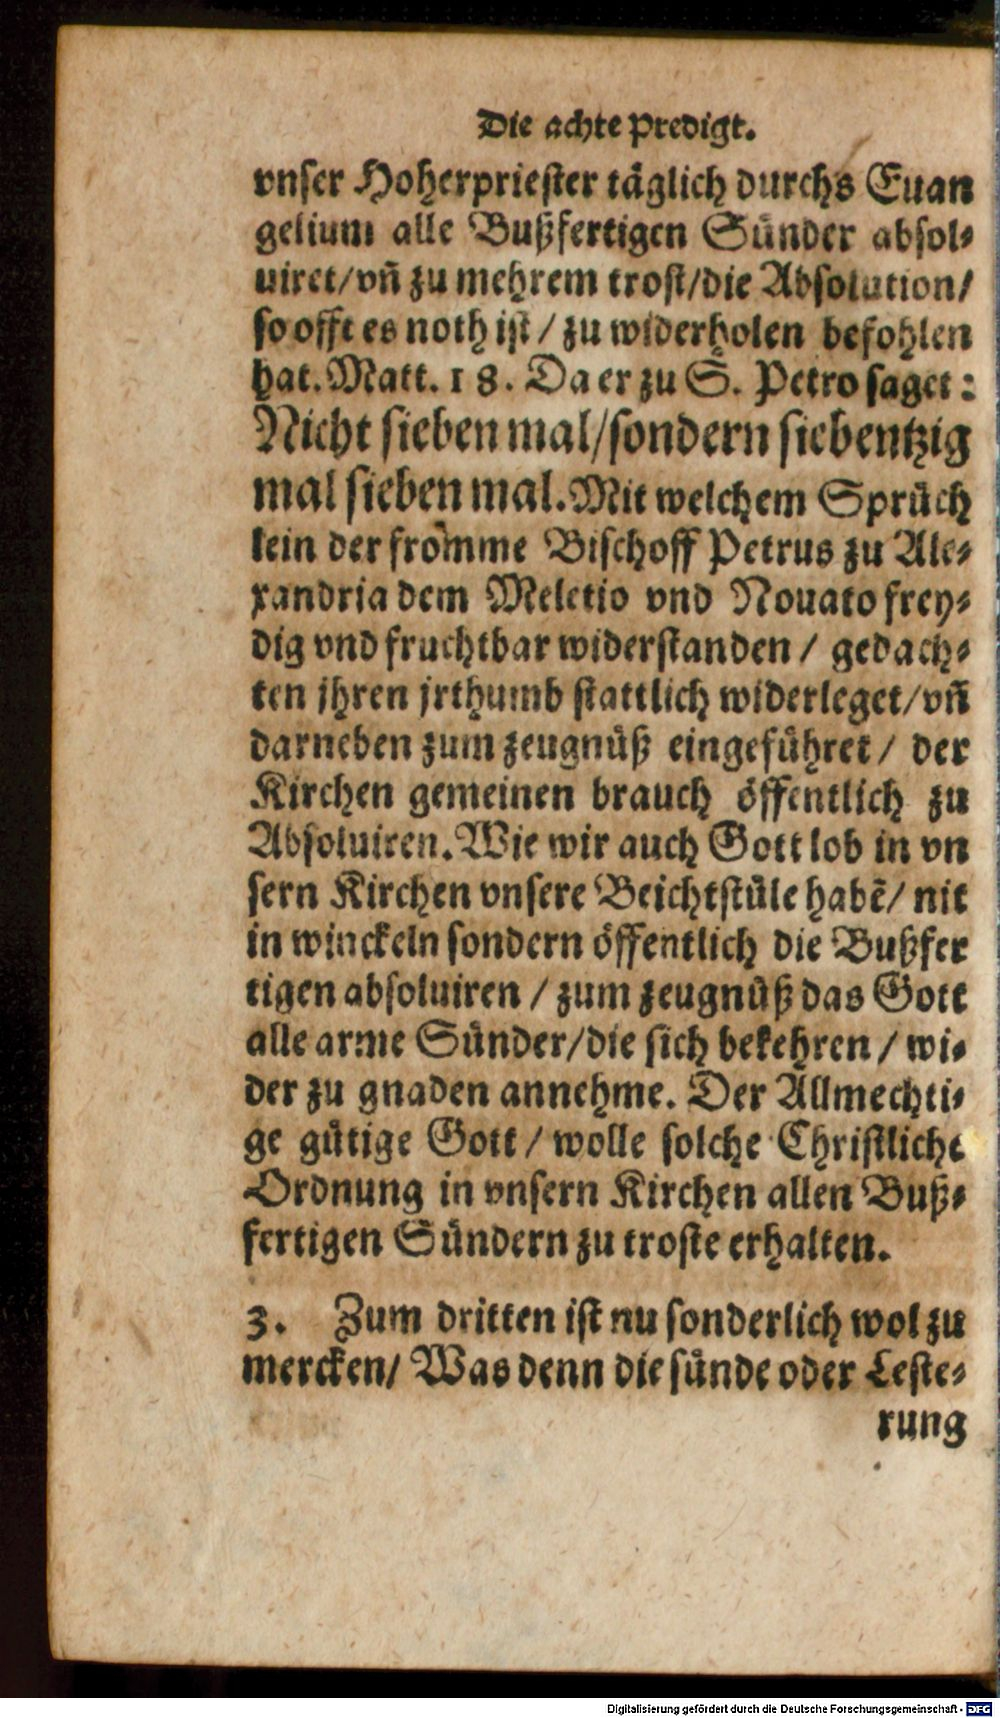 Die achte Predigt.
vnser Hoherpriester täglich durchs Euan
gelium alle Bußfertigen Sünder absol⸗
uiret/vn̄ zu mehrem trost/die Absolution/
so offt es noth ist / zu widerholen befohlen
hat. Matt. 18. Da er zu S. Petro saget:
Nicht sieben mal/sondern siebentzig
mal sieben mal. Mit welchem Sprüch
lein der fromme Bischoff Petrus zu Ale⸗
xandria dem Meletio vnd Nouato frey⸗
dig vnd fruchtbar widerstanden / gedach⸗
ten jhren jrthumb stattlich widerleget/vn̄
darneben zum zeugnüß eingeführet / der
Kirchen gemeinen brauch öffentlich zu
Absoluiren. Wie wir auch Gott lob in vn
sern Kirchen vnsere Beichtstüle habē/ nit
in winckeln sondern öffentlich die Bußfer
tigen absoluiren / zum zeugnüß das Gott
alle arme Sünder/die sich bekehren / wi⸗
der zu gnaden annehme. Der Allmechti⸗
ge gütige Gott / wolle solche Christliche
Ordnung in vnsern Kirchen allen Buß⸗
fertigen Sündern zu troste erhalten.
3. Zum dritten ist nu sonderlich wol zu
mercken/ Was denn die sünde oder Leste⸗
rung
Digitalisierung gefördert durch die Deutsche Forschungsgemeinschaft - DFG